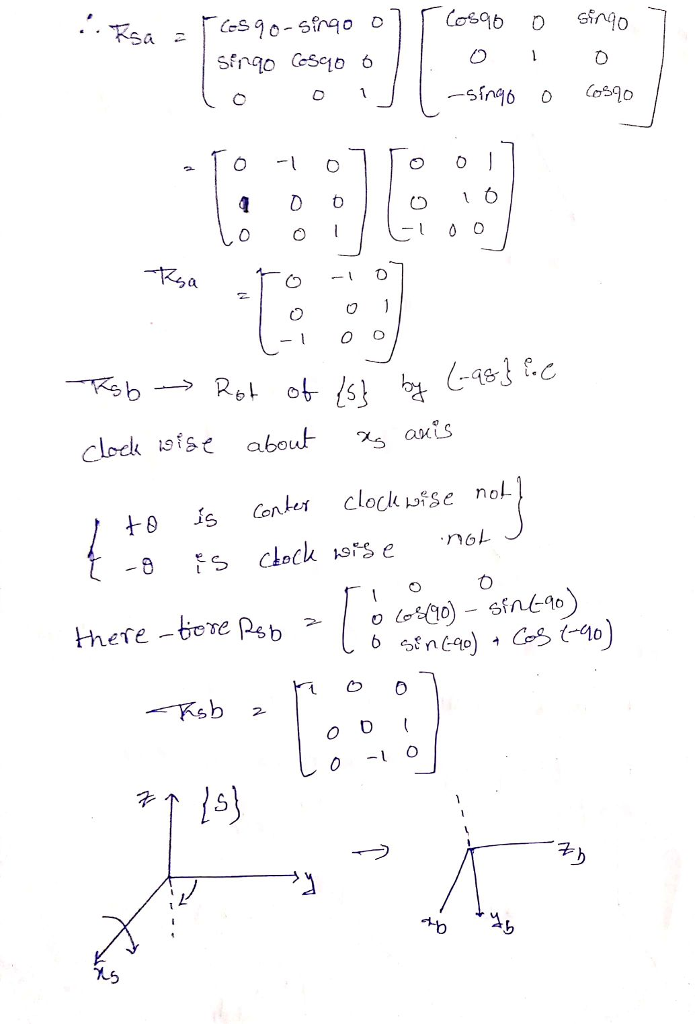 ∴ Rsa = [cos90 -sin90 0] [cos90 0 sin90]
[sin90 cos90 0] [0 1 0]
[0 0 1] [-sin90 0 cos90]
= [0 -1 0] [0 0 1]
[1 0 0] [0 1 0]
[0 0 1] [-1 0 0]
Rsa = [0 -1 0]
[0 0 1]
[-1 0 0]
Rsb → Rot of {s} by (-90} i.e
clock wise about xs axis
{ +θ is conter clockwise not }
{ -θ is clock wise not }
there-fore Rsb = [1 0 0]
[0 cos(90) - sin(-90)]
[0 sin(-90) + cos(-90)]
Rsb = [1 0 0]
[0 0 1]
[0 -1 0]
z {s}
→ zb
y
xb yb
xs